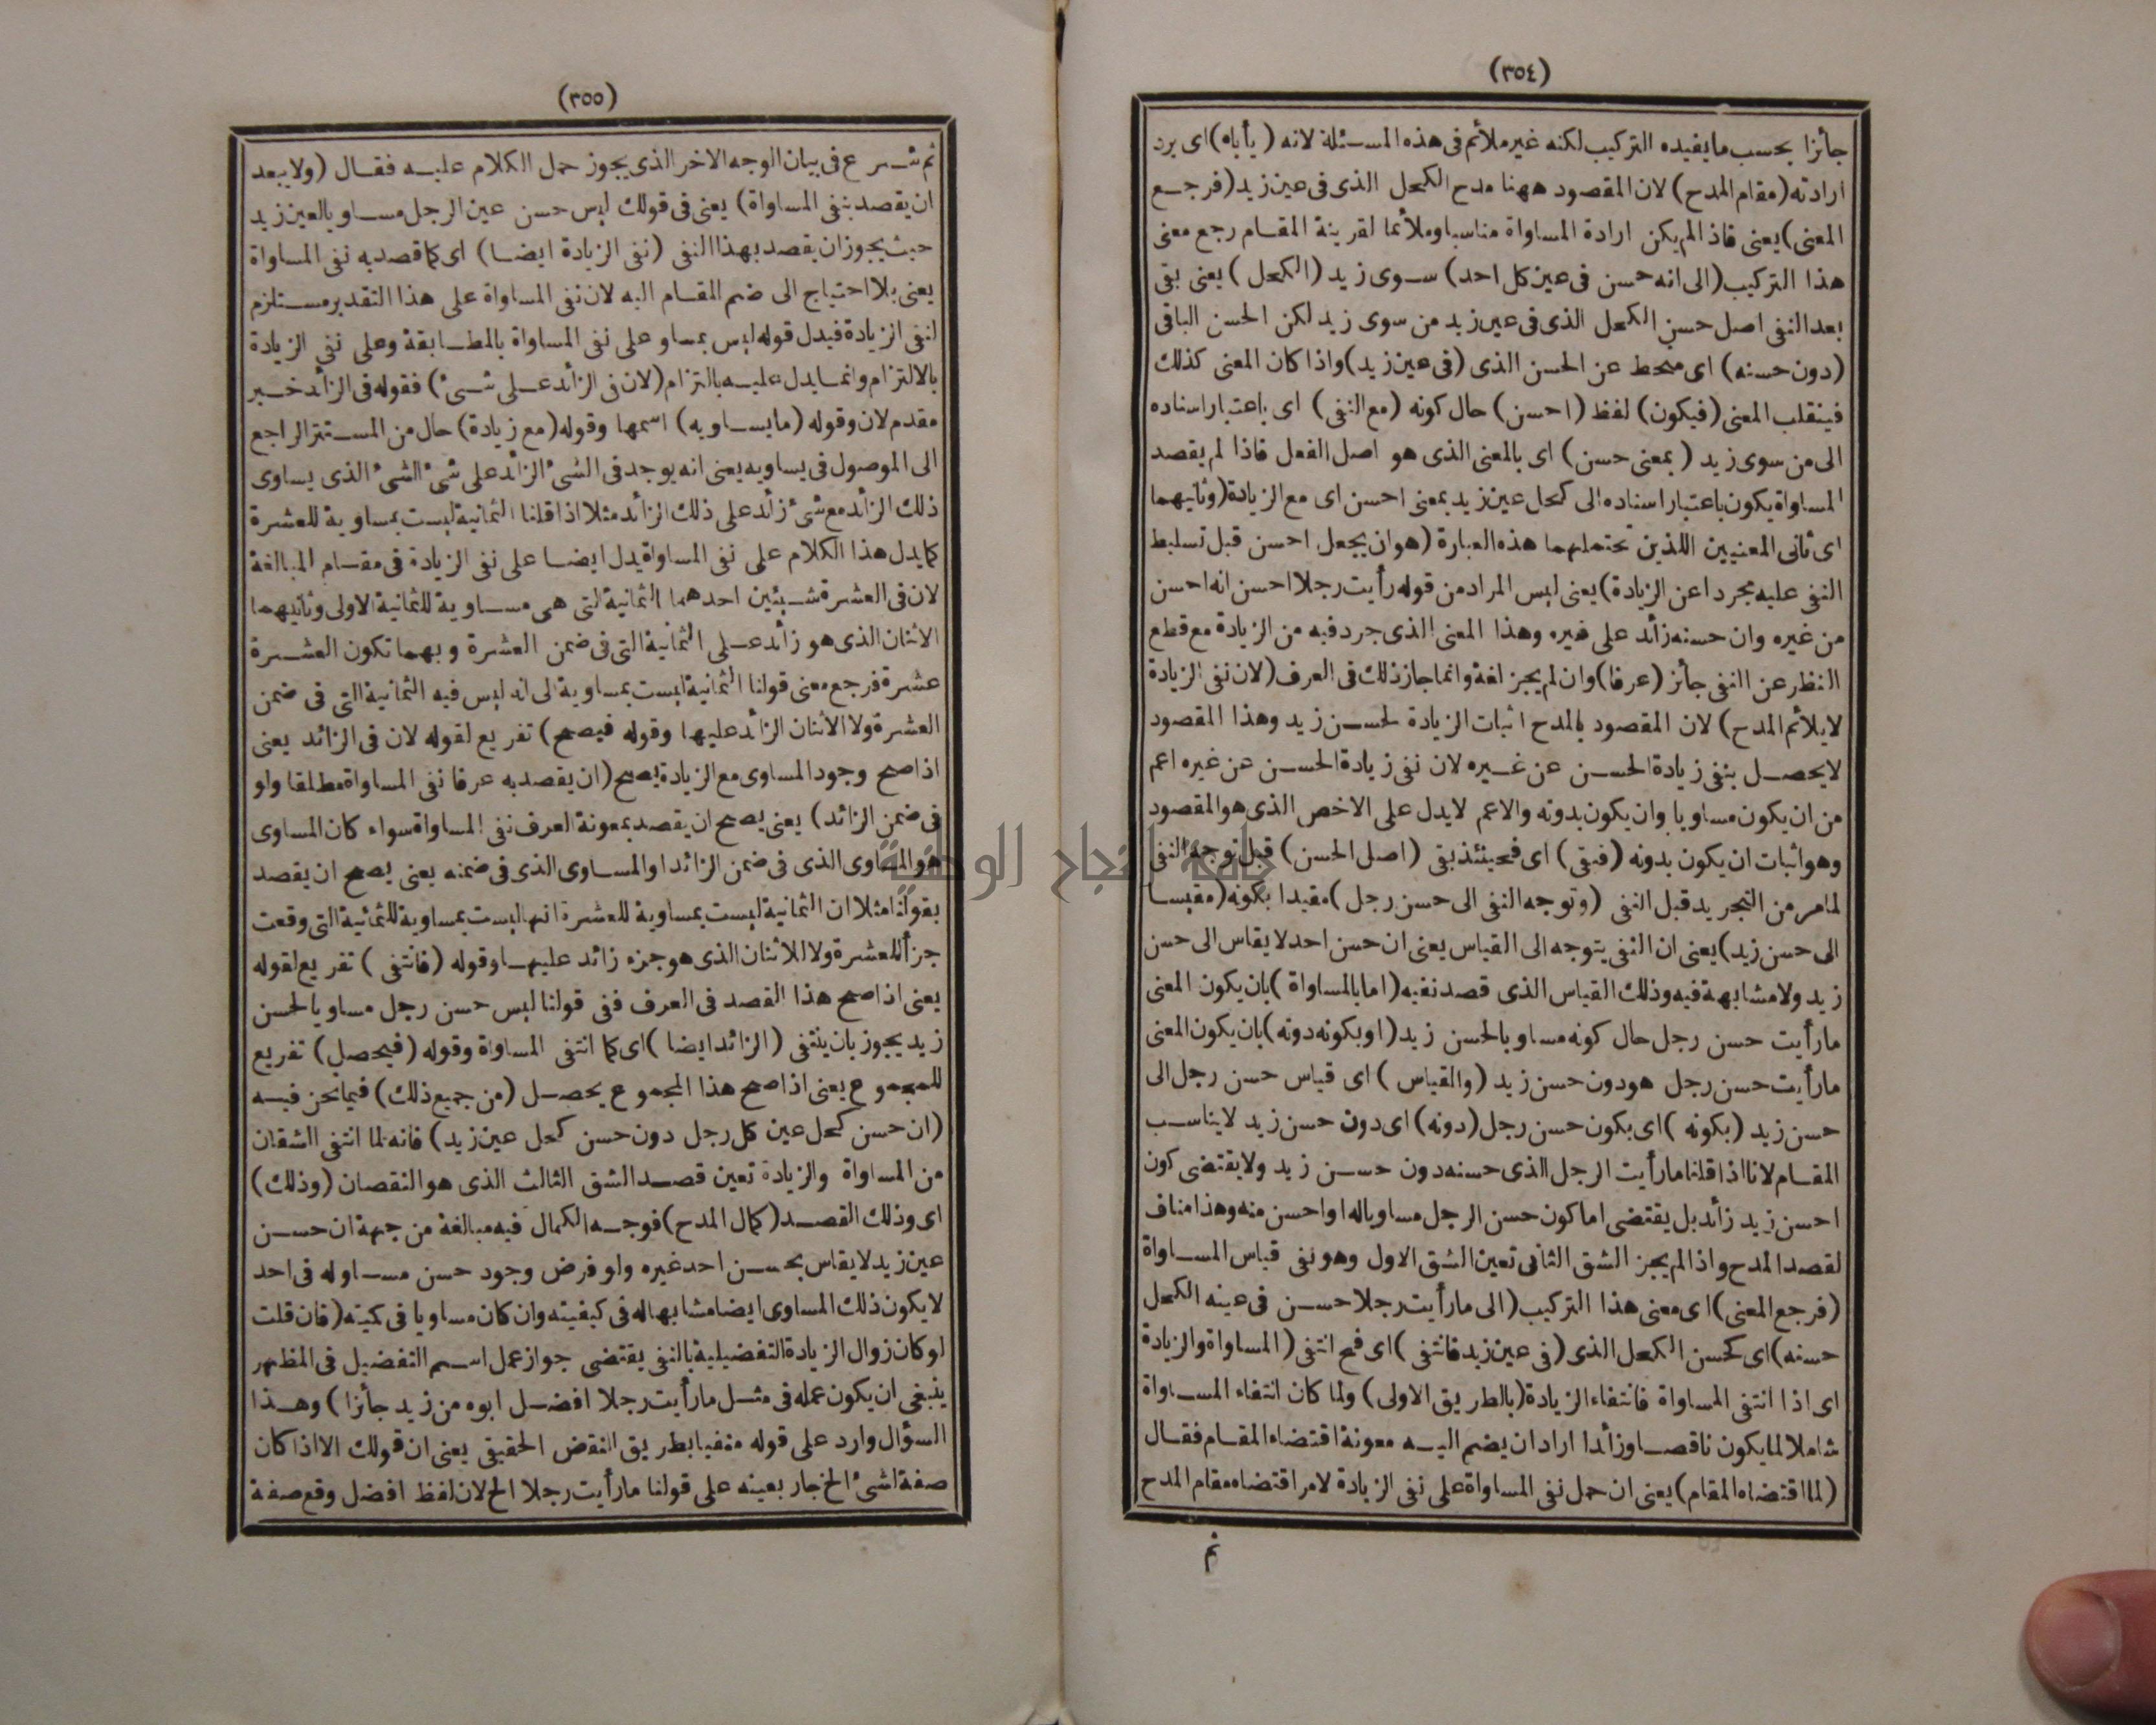 (٣٥٤)
جائزا بحسب ما يفيده التركيب لكنه غير ملائم فى هذه المسئلة لانه (يأباه) اى يرد
ارادته (مقام المدح) لان المقصود ههنا مدح الكحل الذى فى عين زيد (فرجع
المعنى) يعنى فاذا لم يكن ارادة المساواة مناسبا وملائما لقرينة المقام رجع معنى
هذا التركيب (الى انه حسن فى عين كل احد) سوى زيد (الكحل) يعنى بقى
بعد النفى اصل حسن الكحل الذى فى عين زيد من سوى زيد لكن الحسن الباقى
(دون حسنه) اى منحط عن الحسن الذى (فى عين زيد) واذا كان المعنى كذلك
فينقلب المعنى (فيكون) لفظ (احسن) حال كونه (مع النفى) اى باعتبار اسناده
الى من سوى زيد (بمعنى حسن) اى بالمعنى الذى هو اصل الفعل فاذا لم يقصد
المساواة يكون باعتبار اسناده الى كحل عين زيد بمعنى احسن اى مع الزيادة (وثانيهما
اى ثانى المعنيين اللذين تحتملهما هذه العبارة (هو ان يجعل احسن قبل تسليط
النفى عليه مجردا عن الزيادة) يعنى ليس المراد من قوله رأيت رجلا احسن انه احسن
من غيره وان حسنه زائد على غيره وهذا المعنى الذى جرد فيه من الزيادة مع قطع
النظر عن النفى جائز (عرفا) وان لم يجز لغة وانما جاز ذلك فى العرف (لان نفى الزيادة
لا يلائم المدح) لان المقصود بالمدح اثبات الزيادة لحسن زيد وهذا المقصود
لا يحصل بنفى زيادة الحسن عن غيره لان نفى زيادة الحسن عن غيره اعم
من ان يكون مساويا وان يكون بدونه والاعم لا يدل على الاخص الذى هو المقصود
وهو اثبات ان يكون بدونه (فبقى) اى فحينئذ بقى (اصل الحسن) قبل توجه النفى
لما مر من التجريد قبل النفى (وتوجه النفى الى حسن رجل) مقيدا بكونه (مقيسا
الى حسن زيد) يعنى ان النفى يتوجه الى القياس يعنى ان حسن احد لا يقاس الى حسن
زيد ولا مشابهة فيه وذلك القياس الذى قصد نفيه (اما بالمساواة) بان يكون المعنى
ما رأيت حسن رجل حال كونه مساويا لحسن زيد (او بكونه دونه) بان يكون المعنى
ما رأيت حسن رجل هو دون حسن زيد (والقياس) اى قياس حسن رجل الى
حسن زيد (بكونه) اى بكون حسن رجل (دونه) اى دون حسن زيد لا يناسب
المقام لانا اذا قلنا ما رأيت الرجل الذى حسنه دون حسن زيد ولا يقتضى كون
احسن زيد زائد بل يقتضى اما كون حسن الرجل مساويا له او احسن منه وهذا مناف
لقصد المدح واذا لم يجز الشق الثانى تعين الشق الاول وهو نفى قياس المساواة
(فرجع المعنى) اى معنى هذا التركيب (الى ما رأيت رجلا حسن فى عينه الكحل
حسنه) اى كحسن الكحل الذى (فى عين زيد فانتفى) اى فح انتفى (المساواة والزيادة
اى اذا انتفى المساواة فانتفاء الزيادة (بالطريق الاولى) ولما كان انتفاء المساواة
شاملا لما يكون ناقصا وزائدا اراد ان يضم اليه معونة اقتضاء المقام فقال
(لما اقتضاه المقام) يعنى ان حمل نفى المساواة على نفى الزيادة لامر اقتضاه مقام المدح
ثم
(٣٥٥)
ثم شرع فى بيان الوجه الاخر الذى يجوز حمل الكلام عليه فقال (ولا يبعد
ان يقصد بنفى المساواة) يعنى فى قولك ليس حسن عين الرجل مساويا لعين زيد
حيث يجوز ان يقصد بهذا النفى (نفى الزيادة ايضا) اى كما قصد به نفى المساواة
يعنى بلا احتياج الى ضم المقام اليه لان نفى المساواة على هذا التقدير مستلزم
لنفى الزيادة فيدل قوله ليس بمساو على نفى المساواة بالمطابقة وعلى نفى الزيادة
بالالتزام وانما يدل عليه بالتزام (لان فى الزائد على شىء) فقوله فى الزائد خبر
مقدم لان وقوله (ما يساويه) اسمها وقوله (مع زيادة) حال من المستتر الراجع
الى الموصول فى يساويه يعنى انه يوجد فى الشئ الزائد على شئ الشئ الذى يساوى
ذلك الزائد مع شئ زائد على ذلك الزائد مثلا اذا قلنا الثمانية ليست بمساوية للعشرة
كما يدل هذا الكلام على نفى المساواة يدل ايضا على نفى الزيادة فى مقام المبالغة
لان فى العشرة شيئين احدهما الثمانية التى هى مساوية للثمانية الاولى وثانيهما
الاثنان الذى هو زائد على الثمانية التى فى ضمن العشرة وبهما تكون العشرة
عشرة فرجع معنى قولنا الثمانية ليست بمساوية الى انه ليس فيه الثمانية التى فى ضمن
العشرة ولا الاثنان الزائد عليها وقوله فيصح) تفريع لقوله لان فى الزائد يعنى
اذا صح وجود المساوى مع الزيادة يصح (ان يقصد به عرفا نفى المساواة مطلقا ولو
فى ضمن الزائد) يعنى يصح ان يقصد بمعونة العرف نفى المساواة سواء كان المساوى
هو المساوى الذى فى ضمن الزائد او المساوى الذى فى ضمنه يعنى يصح ان يقصد
بقولنا مثلا ان الثمانية ليست بمساوية للعشرة انها ليست بمساوية للثمانية التى وقعت
جزأ للعشرة ولا الاثنان الذى هو جزء زائد عليها وقوله (فانتفى) تفريع لقوله
يعنى اذا صح هذا القصد فى العرف ففى قولنا ليس حسن رجل مساويا لحسن
زيد يجوز بان ينتفى (الزائد ايضا) اى كما انتفى المساواة وقوله (فيحصل) تفريع
للمجموع يعنى اذا صح هذا المجموع يحصل (من جميع ذلك) فيما نحن فيه
(ان حسن كحل عين كل رجل دون حسن كحل عين زيد) فانه لما انتفى الشقان
من المساواة والزيادة تعين قصد الشق الثالث الذى هو النقصان (وذلك)
اى وذلك القصد (كمال المدح) فوجه الكمال فيه مبالغة من جهة ان حسن
عين زيد لا يقاس بحسن احد غيره ولو فرض وجود حسن مساو له فى احد
لا يكون ذلك المساوى ايضا مشابها له فى كيفيته وان كان مساويا فى كميته (فان قلت
لو كان زوال الزيادة التفضيلية بالنفى يقتضى جواز عمل اسم التفضيل فى المظهر
ينبغى ان يكون عمله فى مثل ما رأيت رجلا افضل ابوه من زيد جائزا) وهذا
السؤال وارد على قوله منفيا بطريق النقض الحقيقى يعنى ان قولك الا اذا كان
صفة لشئ الخ جار بعينه على قولنا ما رأيت رجلا الخ لان لفظ افضل وقع صفة
جامعة النجاح الوطنية